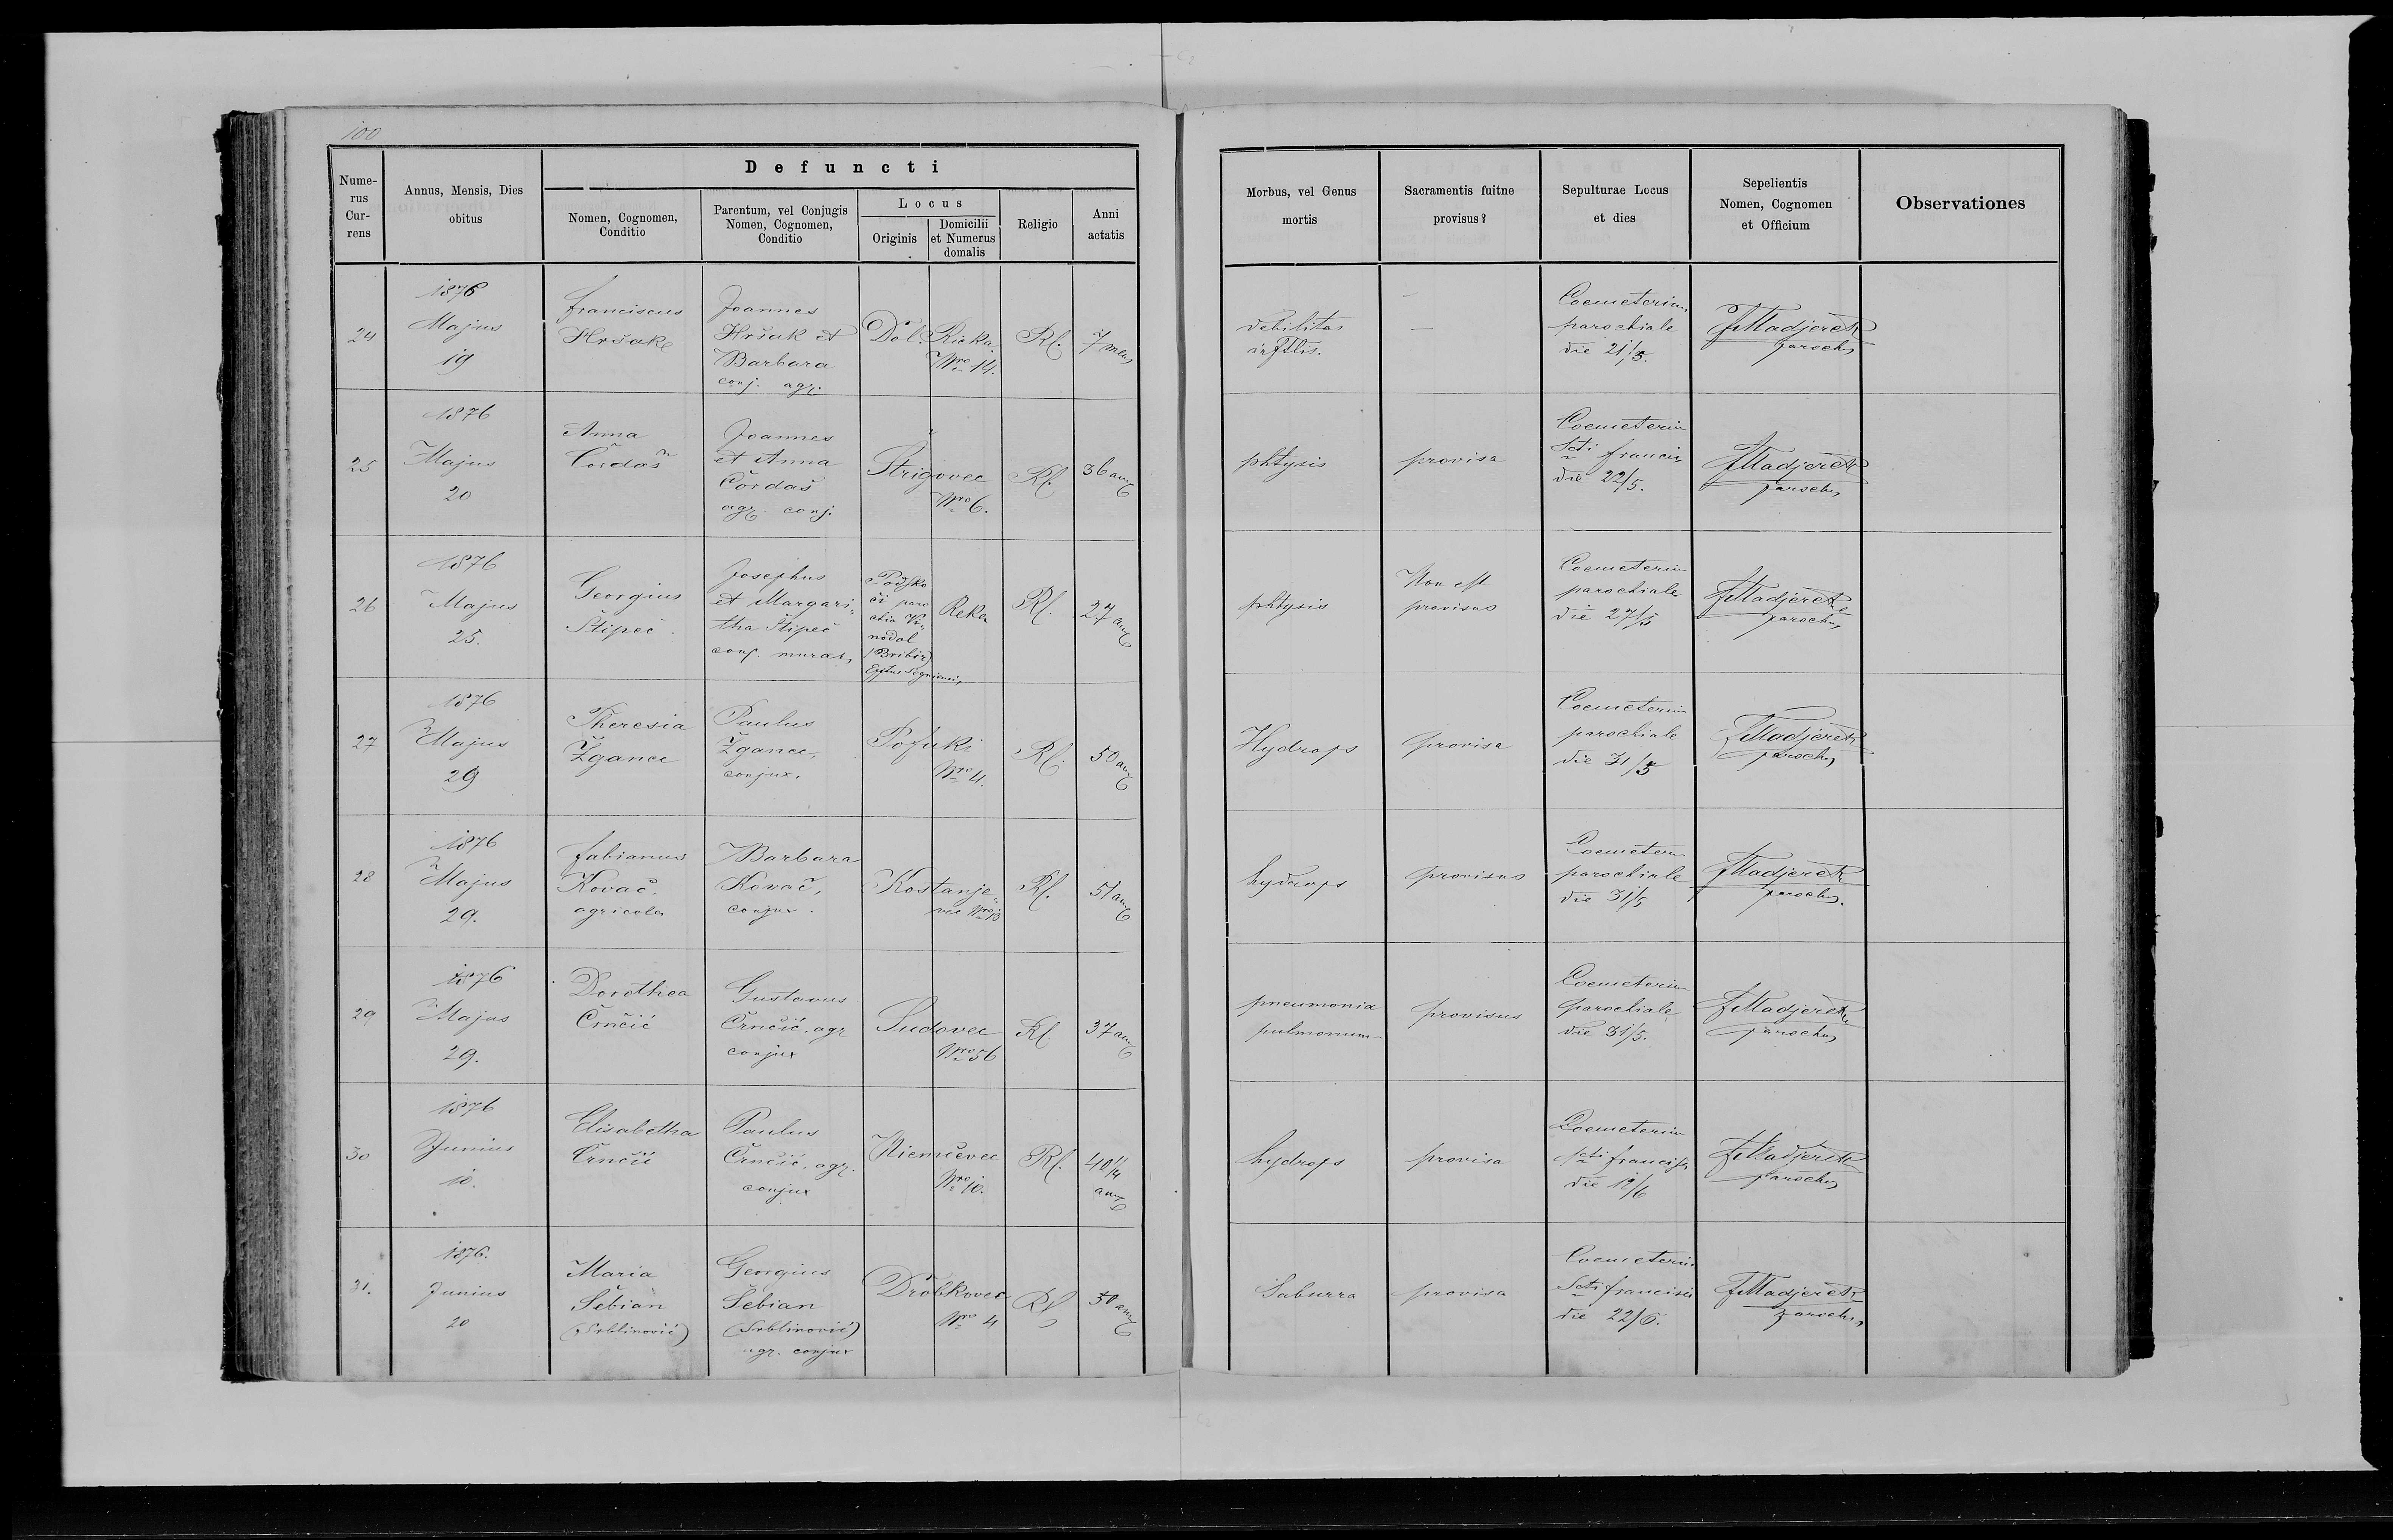 100
Defuncti
Nume-
rus
Cur-
rens
Annus, Mensis, Dies
obitus
Nomen, Cognomen,
Conditio
Parentum, vel Conjugis
Nomen, Cognomen,
Conditio
Locus
Originis
Domicilii
et Numerus
domalis
Religio
Anni
aetatis
Morbus, vel Genus
mortis
Sacramentis fuitne
provisus?
Sepulturae Locus
et dies
Sepelientis
Nomen, Cognomen
et Officium
Observationes
24
1876
Majus
19
Franciscus
Hršak
Joannes
Hršak et
Barbara
conj. agr.
Dol. Rieka
Nro 14.
Rk.
7 men
debilitas
—
Coemeterium
parochiale
die 21/5.
F Madjerek
paroch
25
1876
Majus
20
Anna
Čordaš
Joannes
et Anna
Čordaš
agr. conj.
Strigovec
Nro 6.
Rk.
36 an
phtysis
provisa
Coemeterium
Scti Francis
die 22/5.
F Madjerek
paroch
26
1876
Majus
25.
Georgius
Štipeč.
Josephus
et Margari-
tha Štipeč
conj. murar
chia Vi-
nodol
(Bribir)
Reka
Rk.
27 an
phtysis
Non est
provisus
Coemeterium
parochiale
die 27/5
F Madjerek
paroch
27
1876
Majus
29
Theresia
Žganec
Paulus
Žganec,
conjux.
Pofuki
Nro 4.
Rk.
50 an
Hydrops
provisa
Coemeterium
parochiale
die 31/5
F Madjerek
paroch
28
1876
Majus
29.
Fabianus
Kovač,
agricola
Barbara
Kovač,
conjux.
Kostanje-
vec Nro 13
Rk.
51 an
hydrops
provisus
Coemeterium
parochiale
die 31/5
F Madjerek
paroch.
29
1876
Majus
29.
Dorothea
Črnčić
Gustavus
Črnčić. agr
conjux
Sudovec
Nro 56
Rk.
37 an
pneumonia
pulmonum
provisus
Coemeterium
parochiale
die 31/5.
F Madjerek
paroch
30
1876
Junius
10.
Elisabetha
Črnčić
Paulus
Črnčić, agr.
conjux
Niemčevec
Nro 10.
Rk.
40 1/4
an
hydrops
provisa
Coemeterium
scti Francis
die 12/6
F Madjerek
paroch
31.
1876.
Junius
20
Maria
Šebian
(Srblinović)
Georgius
Šebian
(Srblinović)
agr. conjux
Drobkovec
Nro 4
Rk
50 an
Saburra
provisa
Coemeterium
Scti Francisci
die 22/6.
F Madjerek
paroch